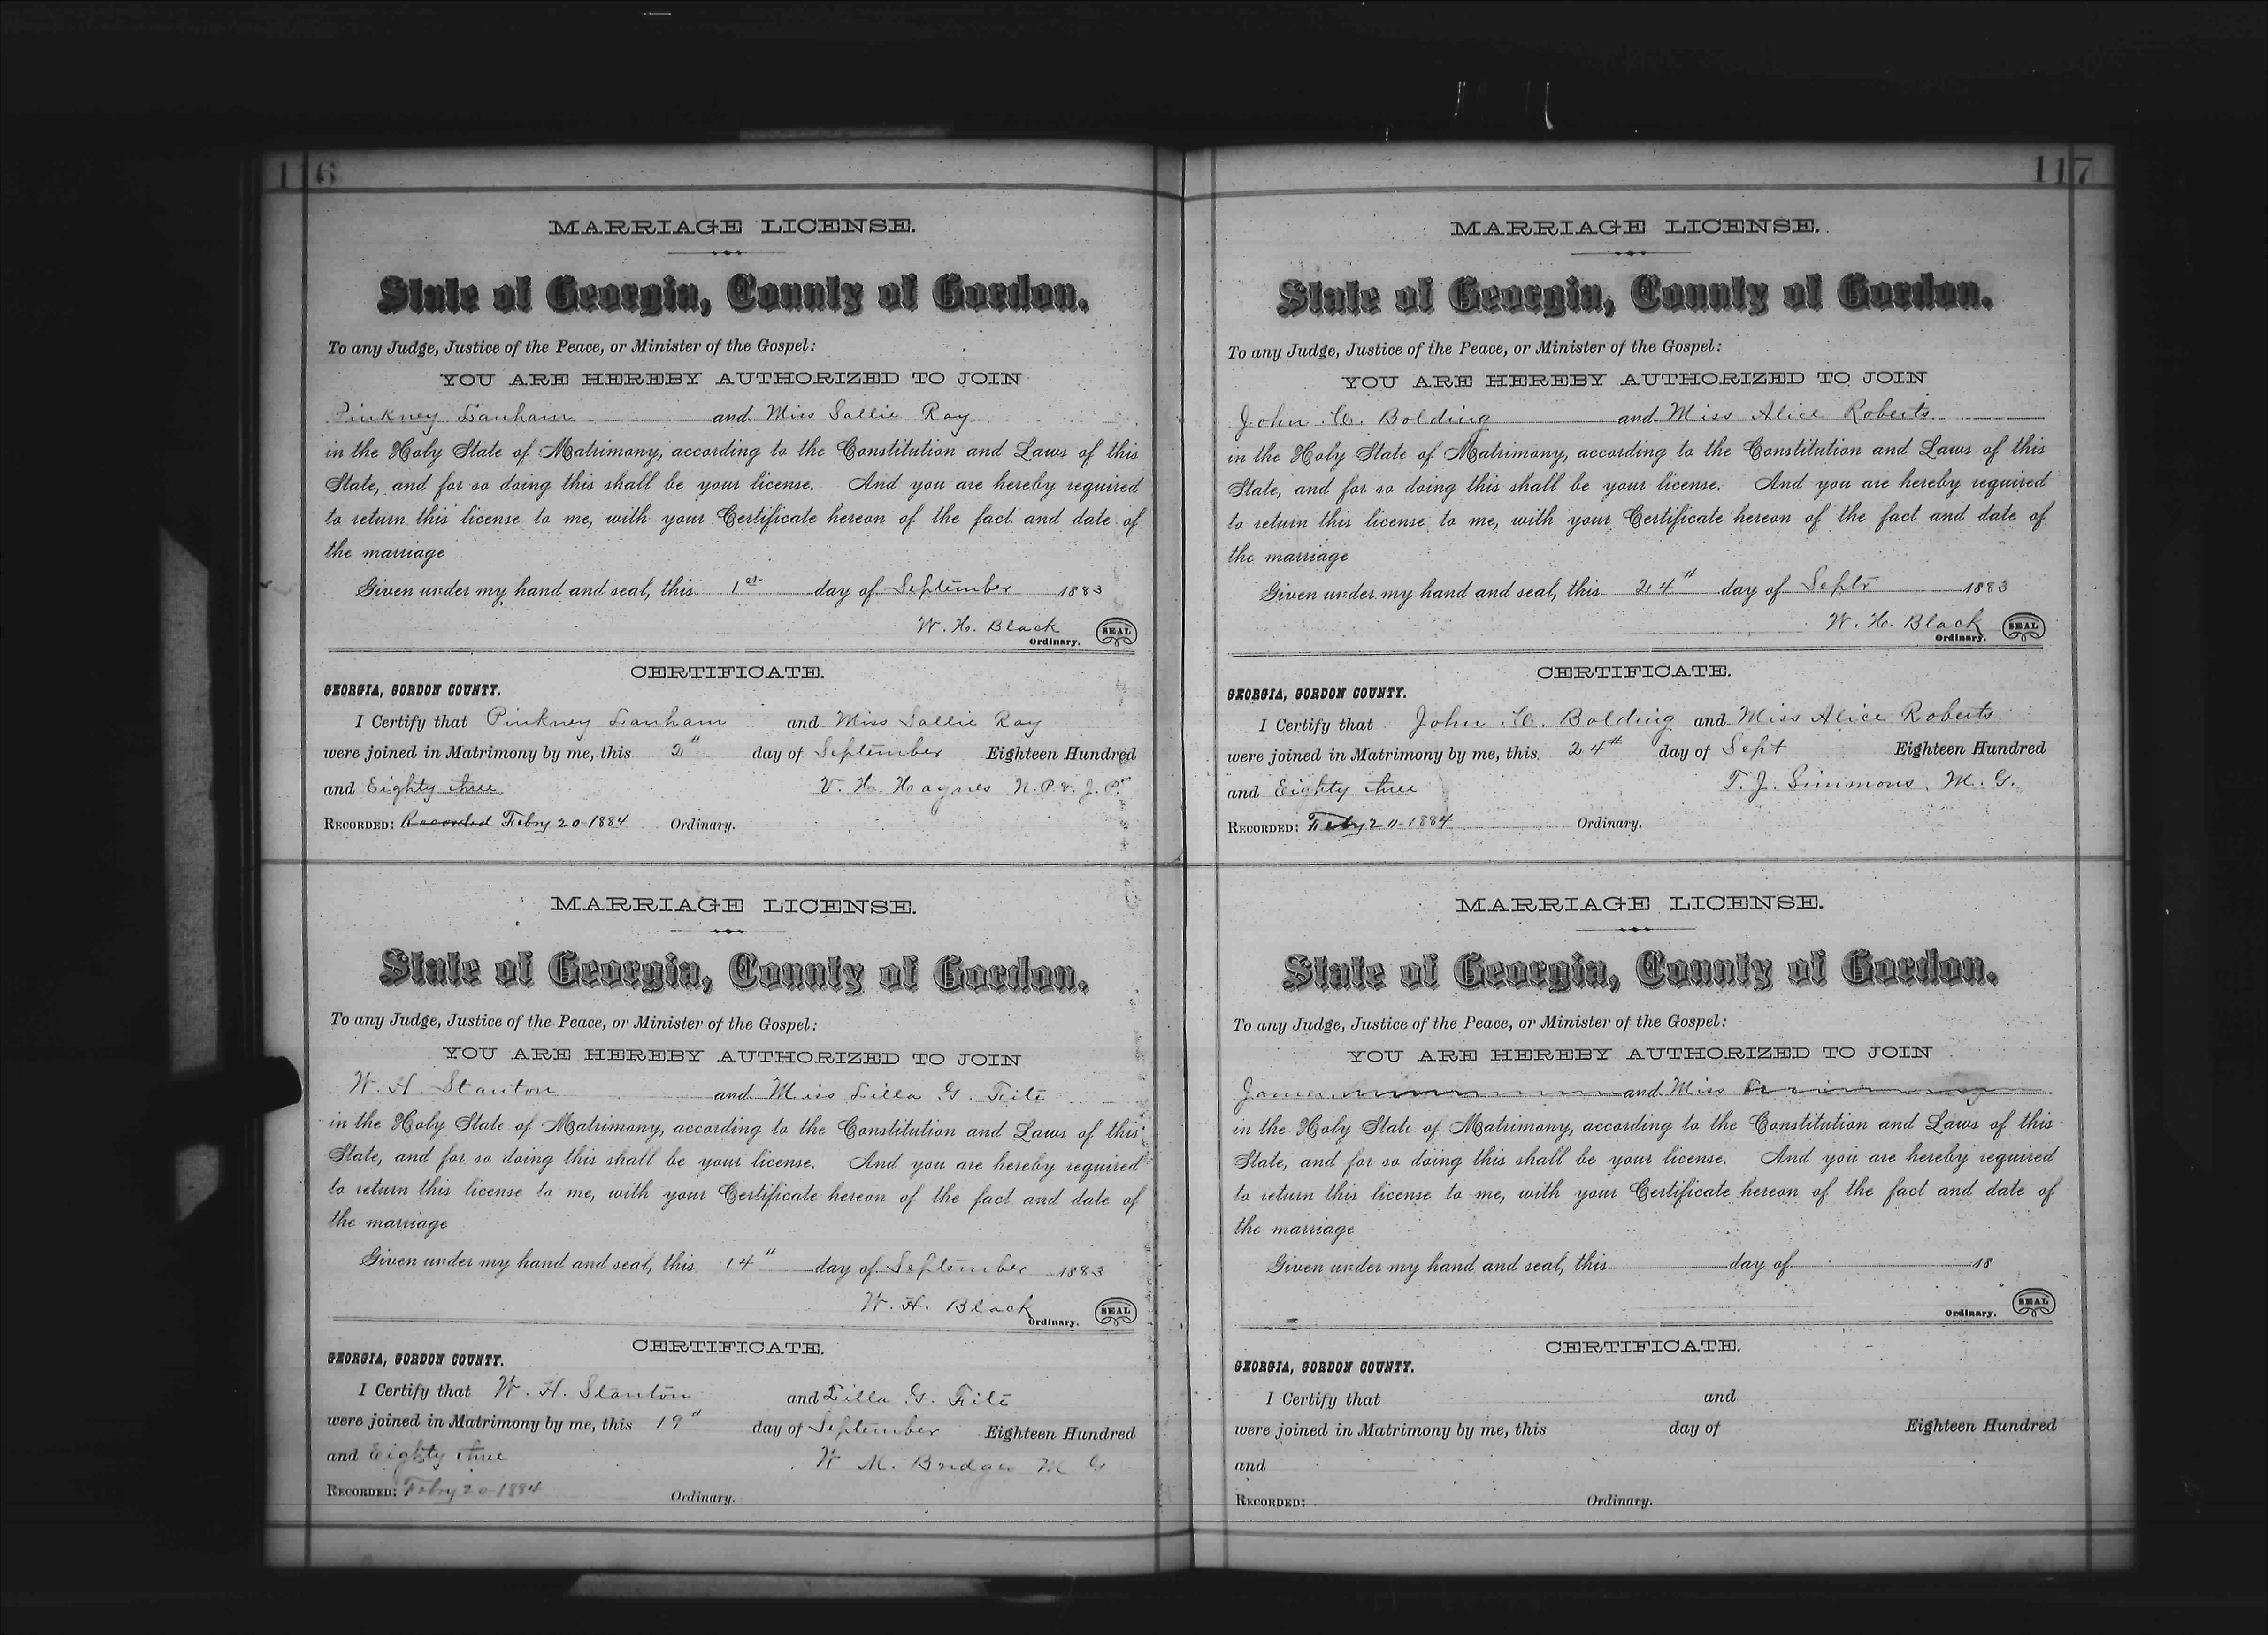 116
MARRIAGE LICENSE.
State of Georgia, County of Gordon.
To any Judge, Justice of the Peace, or Minister of the Gospel:
YOU ARE HEREBY AUTHORIZED TO JOIN
Pinkney Lanham and Miss Sallie Ray
in the Holy State of Matrimony, according to the Constitution and Laws of this
State, and for so doing this shall be your license. And you are hereby required
to return this license to me, with your Certificate hereon of the fact and date of
the marriage
Given under my hand and seal, this 1st day of September 1883
W. H. Black
Ordinary. SEAL
CERTIFICATE.
GEORGIA, GORDON COUNTY.
I Certify that Pinkney Lanham and Miss Sallie Ray
were joined in Matrimony by me, this 2" day of September Eighteen Hundred
and Eighty three V. H. Haynes N.P. & J.P.
RECORDED: Recorded Febry 20-1884 Ordinary.
MARRIAGE LICENSE.
State of Georgia, County of Gordon.
To any Judge, Justice of the Peace, or Minister of the Gospel:
YOU ARE HEREBY AUTHORIZED TO JOIN
W. H. Stanton and Miss Lilla G. Fite
in the Holy State of Matrimony, according to the Constitution and Laws of this
State, and for so doing this shall be your license. And you are hereby required
to return this license to me, with your Certificate hereon of the fact and date of
the marriage
Given under my hand and seal, this 14" day of September 1883
W. H. Black
Ordinary. SEAL
CERTIFICATE.
GEORGIA, GORDON COUNTY.
I Certify that W. H. Stanton and Lilla G. Fite
were joined in Matrimony by me, this 19" day of September Eighteen Hundred
and Eighty three W. M. Bridges M G
RECORDED: Febry 20-1884 Ordinary.
117
MARRIAGE LICENSE.
State of Georgia, County of Gordon.
To any Judge, Justice of the Peace, or Minister of the Gospel:
YOU ARE HEREBY AUTHORIZED TO JOIN
John C. Bolding and Miss Alice Roberts
in the Holy State of Matrimony, according to the Constitution and Laws of this
State, and for so doing this shall be your license. And you are hereby required
to return this license to me, with your Certificate hereon of the fact and date of
the marriage
Given under my hand and seal, this 24th day of Septr 1883
W. H. Black
Ordinary. SEAL
CERTIFICATE.
GEORGIA, GORDON COUNTY.
I Certify that John C. Bolding and Miss Alice Roberts
were joined in Matrimony by me, this 24th day of Sept Eighteen Hundred
and Eighty three T. J. Simmons, M. G.
RECORDED: Feby 20-1884 Ordinary.
MARRIAGE LICENSE.
State of Georgia, County of Gordon.
To any Judge, Justice of the Peace, or Minister of the Gospel:
YOU ARE HEREBY AUTHORIZED TO JOIN
James and Miss
in the Holy State of Matrimony, according to the Constitution and Laws of this
State, and for so doing this shall be your license. And you are hereby required
to return this license to me, with your Certificate hereon of the fact and date of
the marriage
Given under my hand and seal, this day of 18
Ordinary. SEAL
CERTIFICATE.
GEORGIA, GORDON COUNTY.
I Certify that and
were joined in Matrimony by me, this day of Eighteen Hundred
and
RECORDED: Ordinary.